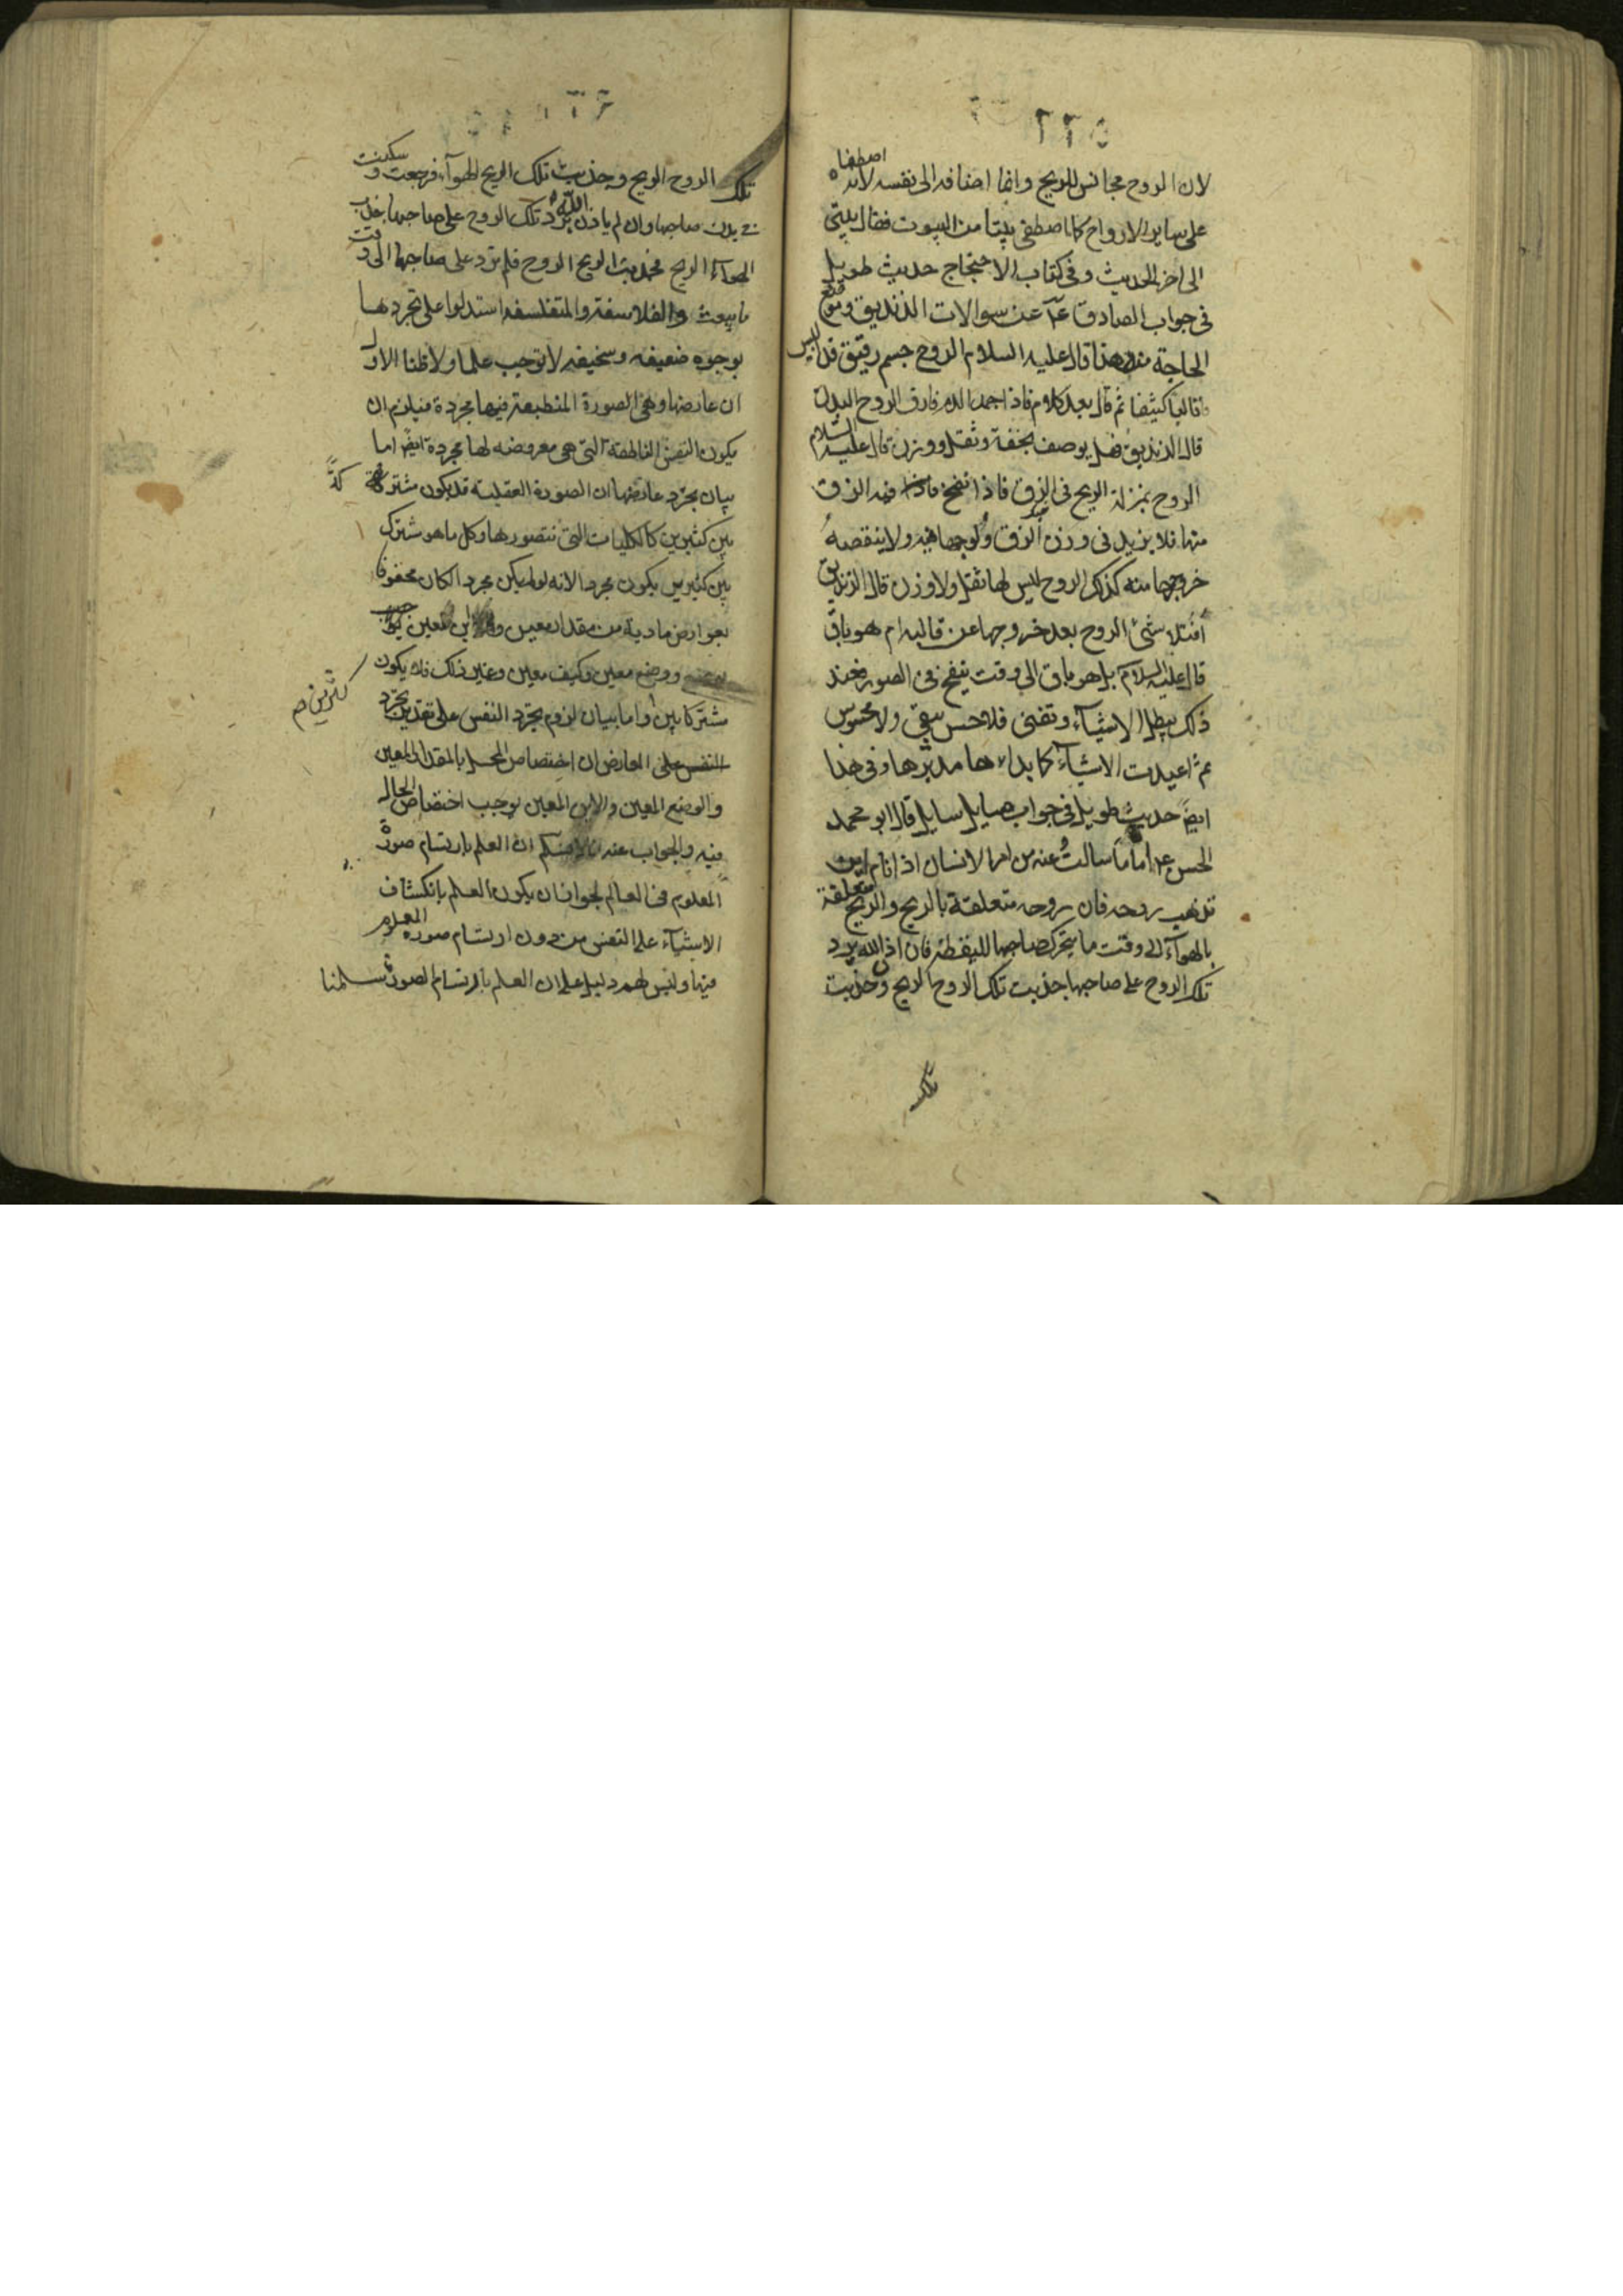 ٢٢٥
لان الروح مجانس للريح وانما اضافه الى نفسه لانه اصطفاه
على ساير الارواح كما اصطفى بيتا من البيوت فقال بيتي
الى اخر الحديث وفي كتاب الاحتجاج حديث طويل
في جواب الصادق عليه عن سوالات الزنديق وموضع
الحاجة منه هذا قال عليه السلام الروح جسم رقيق قد البس
قالبا كثيفا ثم قال بعد كلام فاذا جمد الدم فارق الروح البدن
قال الزنديق فهل يوصف بخفة وثقل ووزن قال عليه السلام
الروح بمنزلة الريح في الزق فاذا نفخ فيه الزق
منها فلا يزيد في وزن الزق ولوجها فيه ولا ينقصه
خروجها منه كذلك الروح ليس لها ثقل ولا وزن قال الزنديق
افتتلاشى الروح بعد خروجها عن قالبه ام هو باق
قال عليه السلام بل هو باق الى وقت ينفخ في الصور فعند
ذلك يبطل الاشياء وتفنى فلا حس يبقى ولا محسوس
ثم اعيدت الاشياء كما بداءها مدبرها وفي هذا
ايضً حديث طويل في جواب سايل قال ابو محمد
الحسن اما ما سالت عنه من امر الانسان اذا نام اين
تذهب روحه فان روحه متعلقة بالريح والريح متعلقة
بالهواء الى وقت ما يتحرك صاحبها لليقظة فان اذن الله برد
تلك الروح على صاحبها جذبت تلك الروح الريح وجذبت
تلك
٢٢٦
تلك الروح الريح وجذبت تلك الريح الهواء فرجعت وسكنت
في بدن صاحبها وان لم ياذن الله برد تلك الروح على صاحبها جذب
الهواء الريح فجذبت الريح الروح فلم ترد على صاحبها الى وقت
ما يبعث والفلاسفة والمتفلسفه استدلوا على تجردها
بوجوه ضعيفه وسخيفه لا توجب علما ولا ظنا الاول
ان عارضها وهي الصورة المنطبعة فيها مجردة فيلزم ان
يكون النفس الناطقة التي هي معروضه لها مجردة ايضً اما
بيان تجرد عارضها ان الصورة العقلية قد يكون مشتركة
بين كثيرين كالكليات التي نتصورها وكل ما هو مشترك
بين كثيرين يكون مجردا لانه لو لم يكن مجردا لكان محفوفا
بعوارض مادية من مقدار معين واين معين
ووضع معين وكيف معين وغير ذلك فلا يكون
مشتركا بين واما بيان لزوم تجرد النفس على تقدير تجرد
كثيرين صم
النفس على العارض ان اختصاص المحل بالمقدار المعين
والوضع المعين والاين المعين يوجب اختصاص الحال
فيه والجواب عنه انا لانسلم ان العلم بارتسام صورة
المعلوم في العالم لجواز ان يكون العلم بانكشاف
الاشياء على النفس من دون ارتسام صورة المعلوم
فيها وليس لهم دليل على ان العلم بارتسام الصورة سلمنا